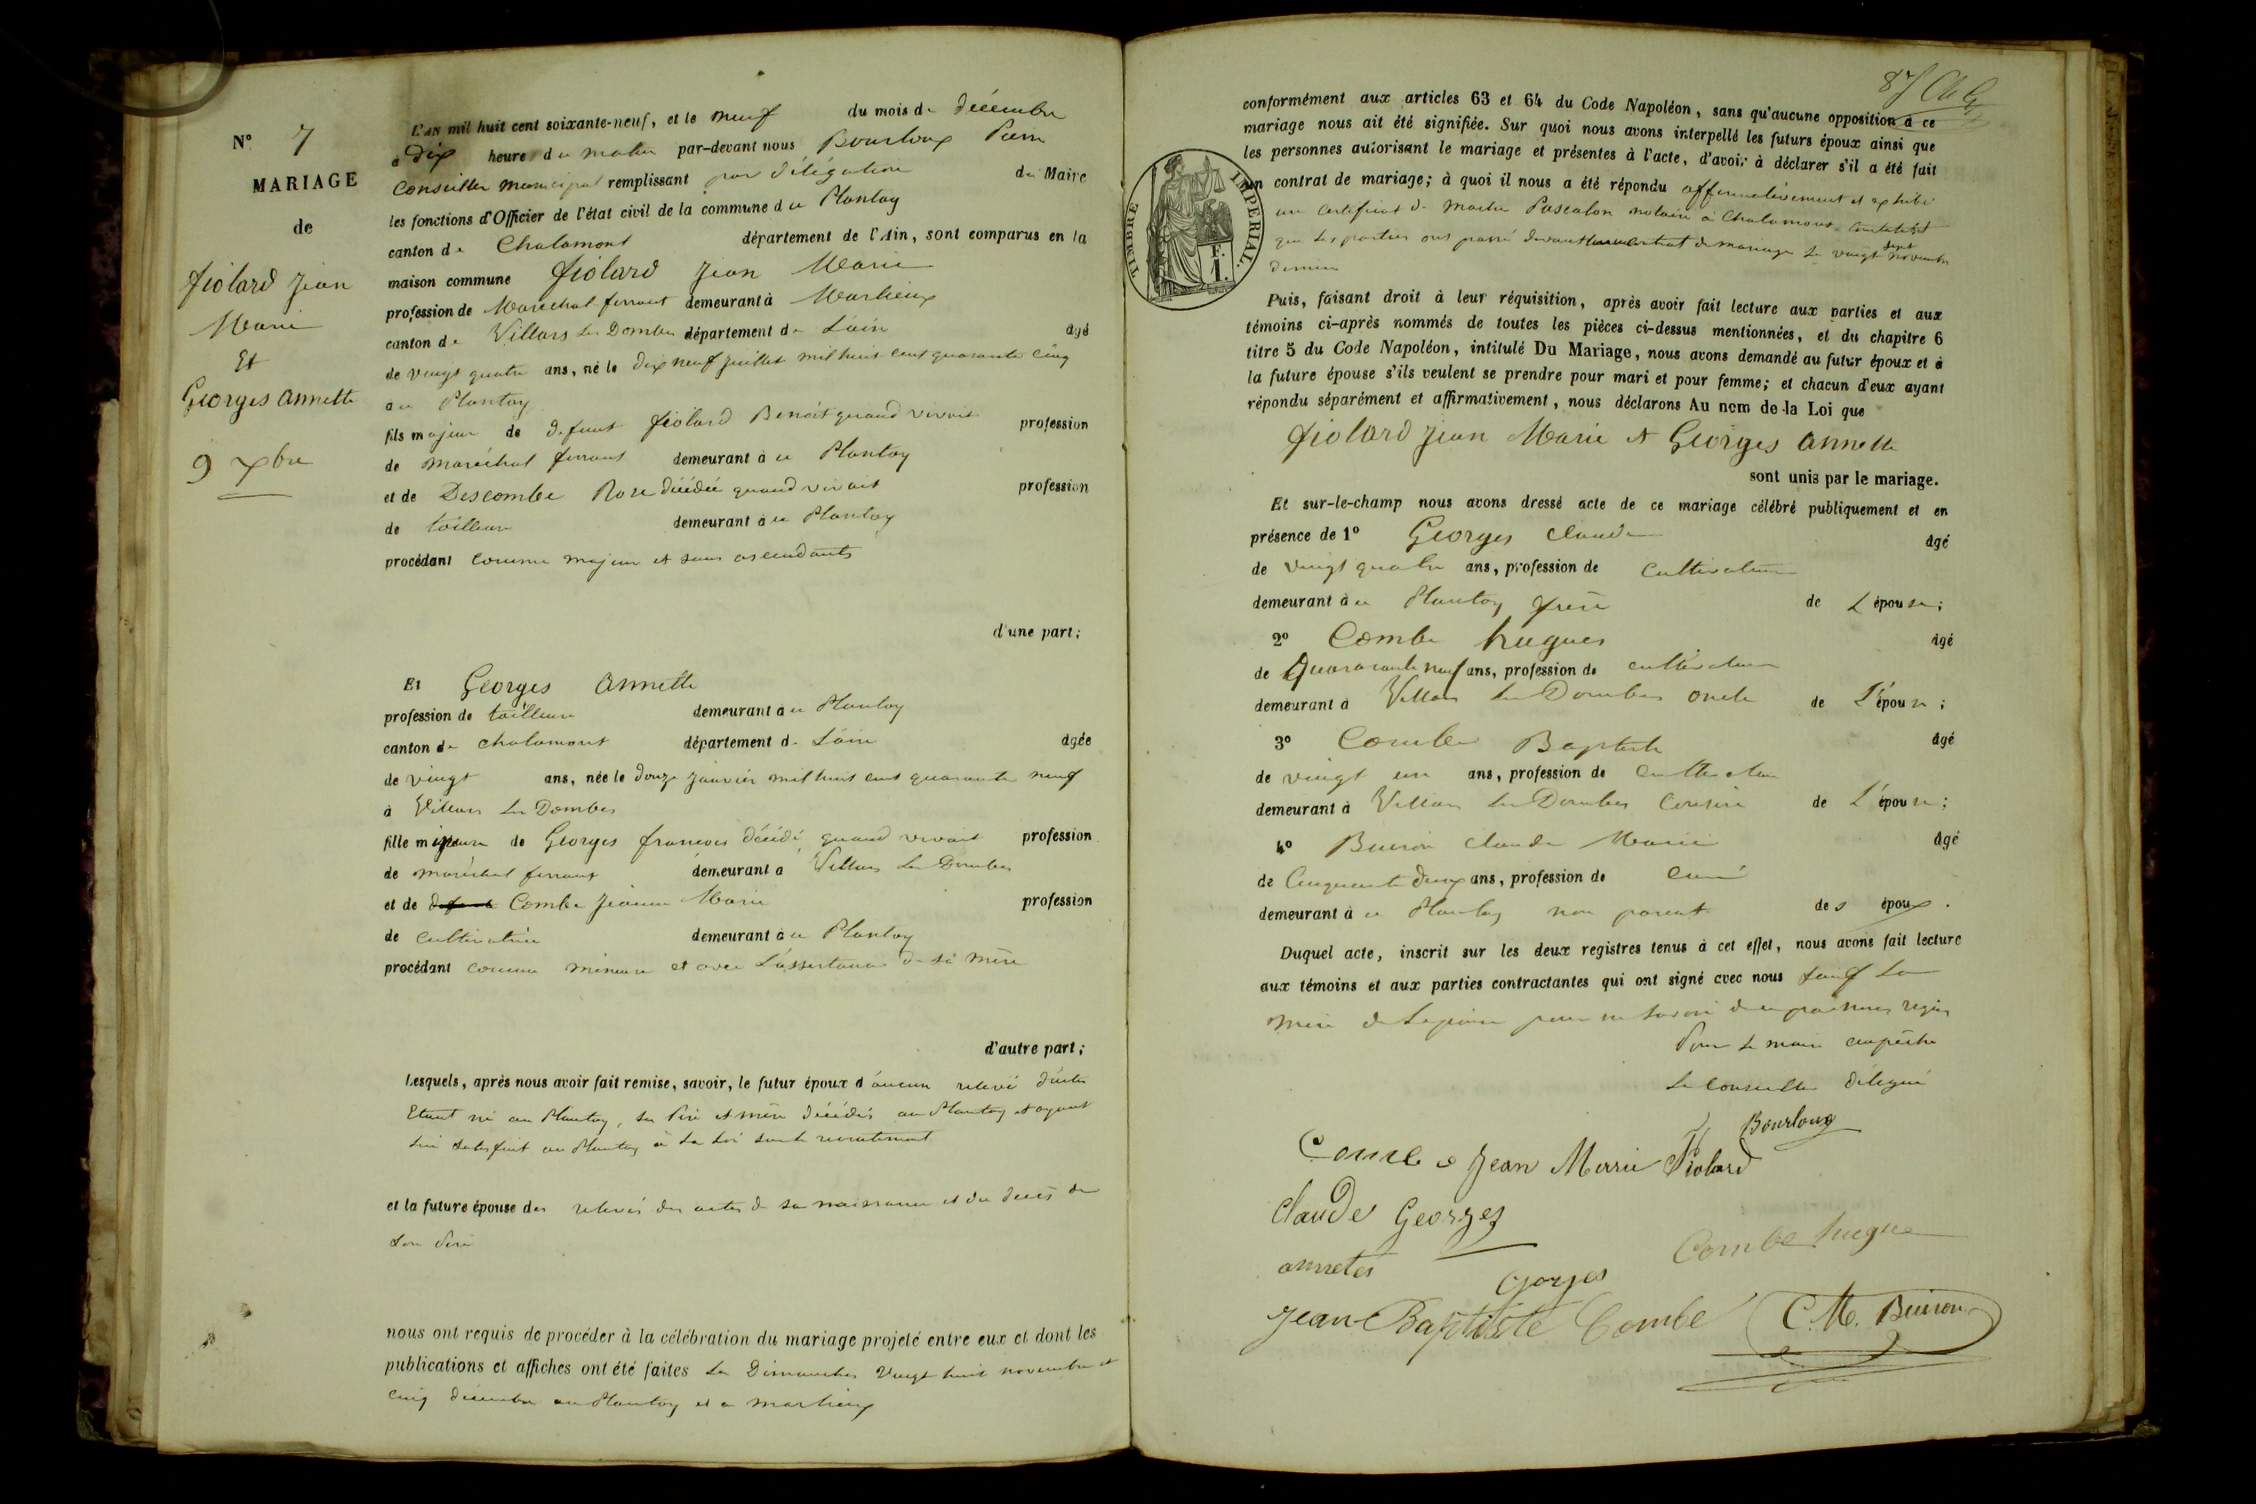 N° 7
MARIAGE
de
fiolard Jean
Marie
Et
Georges Annette
9 Xbre
L'AN mil huit cent soixante-neuf, et le neuf du mois de décembre
à dix heure du matin par-devant nous Bourloux Pierre
Conseiller municipal remplissant par délégation du Maire
les fonctions d'Officier de l'état civil de la commune du Plantay
canton de Chalamont département de l'Ain, sont comparus en la
maison commune fiolard Jean Marie
profession de Maréchal ferrant demeurant à Marlieux
canton de Villars les Dombes département de L'ain âgé
de vingt quatre ans, né le dix neuf juillet mil huit cent quarante cinq
au Plantay
fils majeur de defunt fiolard Benoit quand vivait profession
de maréchal ferrant demeurant à u Plantay
et de Descombe Rose décédée quand vivait profession
de tailleuse demeurant à u Plantay
procédant comme majeur et sans ascendants
d'une part;
Et Georges Annette
profession de tailleuse demeurant à u Plantay
canton de chalamont département de L'ain âgée
de vingt ans, née le douze janvier mil huit cent quarante neuf
à Villars les Dombes
fille mineure de Georges francois décédé quand vivait profession
de maréchal ferrant demeurant à Villars les Dombes
et de Combe Jeanne Marie profession
de cultivatrice demeurant à u Plantay
procédant comme mineure et avec L'assistance de sa mère
d'autre part;
Lesquels, après nous avoir fait remise, savoir, le futur époux d'aucun relevé d'actes
Etant né au Plantay, ses Père et mère décédés au Plantay et ayant
lui satisfait au Plantay à la Loi sur le recrutement
et la future épouse des relevés des actes de sa naissance et du décès de
son Père
nous ont requis de procéder à la célébration du mariage projeté entre eux et dont les
publications et affiches ont été faites les Dimanches vingt huit novembre et
cinq décembre au Plantay et a marlieux
87
conformément aux articles 63 et 64 du Code Napoléon, sans qu'aucune opposition à ce
mariage nous ait été signifiée. Sur quoi nous avons interpellé les futurs époux ainsi que
les personnes autorisant le mariage et présentes à l'acte, d'avoir à déclarer s'il a été fait
un contrat de mariage; à quoi il nous a été répondu affirmativement et exhibé
un certificat de maitre Pascalon notaire à Chalamont constatant
que les parties ont passé devant lui contrat de mariage le vingt sept novembre
dernier
TIMBRE IMPERIAL.
F.
1.
Puis, faisant droit à leur réquisition, après avoir fait lecture aux parties et aux
témoins ci-après nommés de toutes les pièces ci-dessus mentionnées, et du chapitre 6
titre 5 du Code Napoléon, intitulé Du Mariage, nous avons demandé au futur époux et à
la future épouse s'ils veulent se prendre pour mari et pour femme; et chacun d'eux ayant
répondu séparément et affirmativement, nous déclarons Au nom de la Loi que
fiolard Jean Marie et Georges Annette
sont unis par le mariage.
Et sur-le-champ nous avons dressé acte de ce mariage célébré publiquement et en
présence de 1° Georges Claude âgé
de vingt quatre ans, profession de Cultivateur
demeurant à u Plantay frère de L'épouse;
2° Combe hugues âgé
de quarante neuf ans, profession de cultivateur
demeurant à Villars les Dombes oncle de L'épouse;
3° Combe Baptiste âgé
de vingt un ans, profession de cultivateur
demeurant à Villars les Dombes Cousin de L'épouse;
4° Buiron Claude Marie âgé
de Cinquante deux ans, profession de Curé
demeurant à u Plantay non parent des époux.
Duquel acte, inscrit sur les deux registres tenus à cet effet, nous avons fait lecture
aux témoins et aux parties contractantes qui ont signé avec nous sauf La
mère de Lépouse pour ne savoir de ce par nous requis
Pour Le maire empêché
Le Conseiller délégué
Bourloux
Combe Jean Marie Fiolard
Claude Georges
Combe hugue
annetes Gorges
Jean Baptiste Combe C. M. Buiron